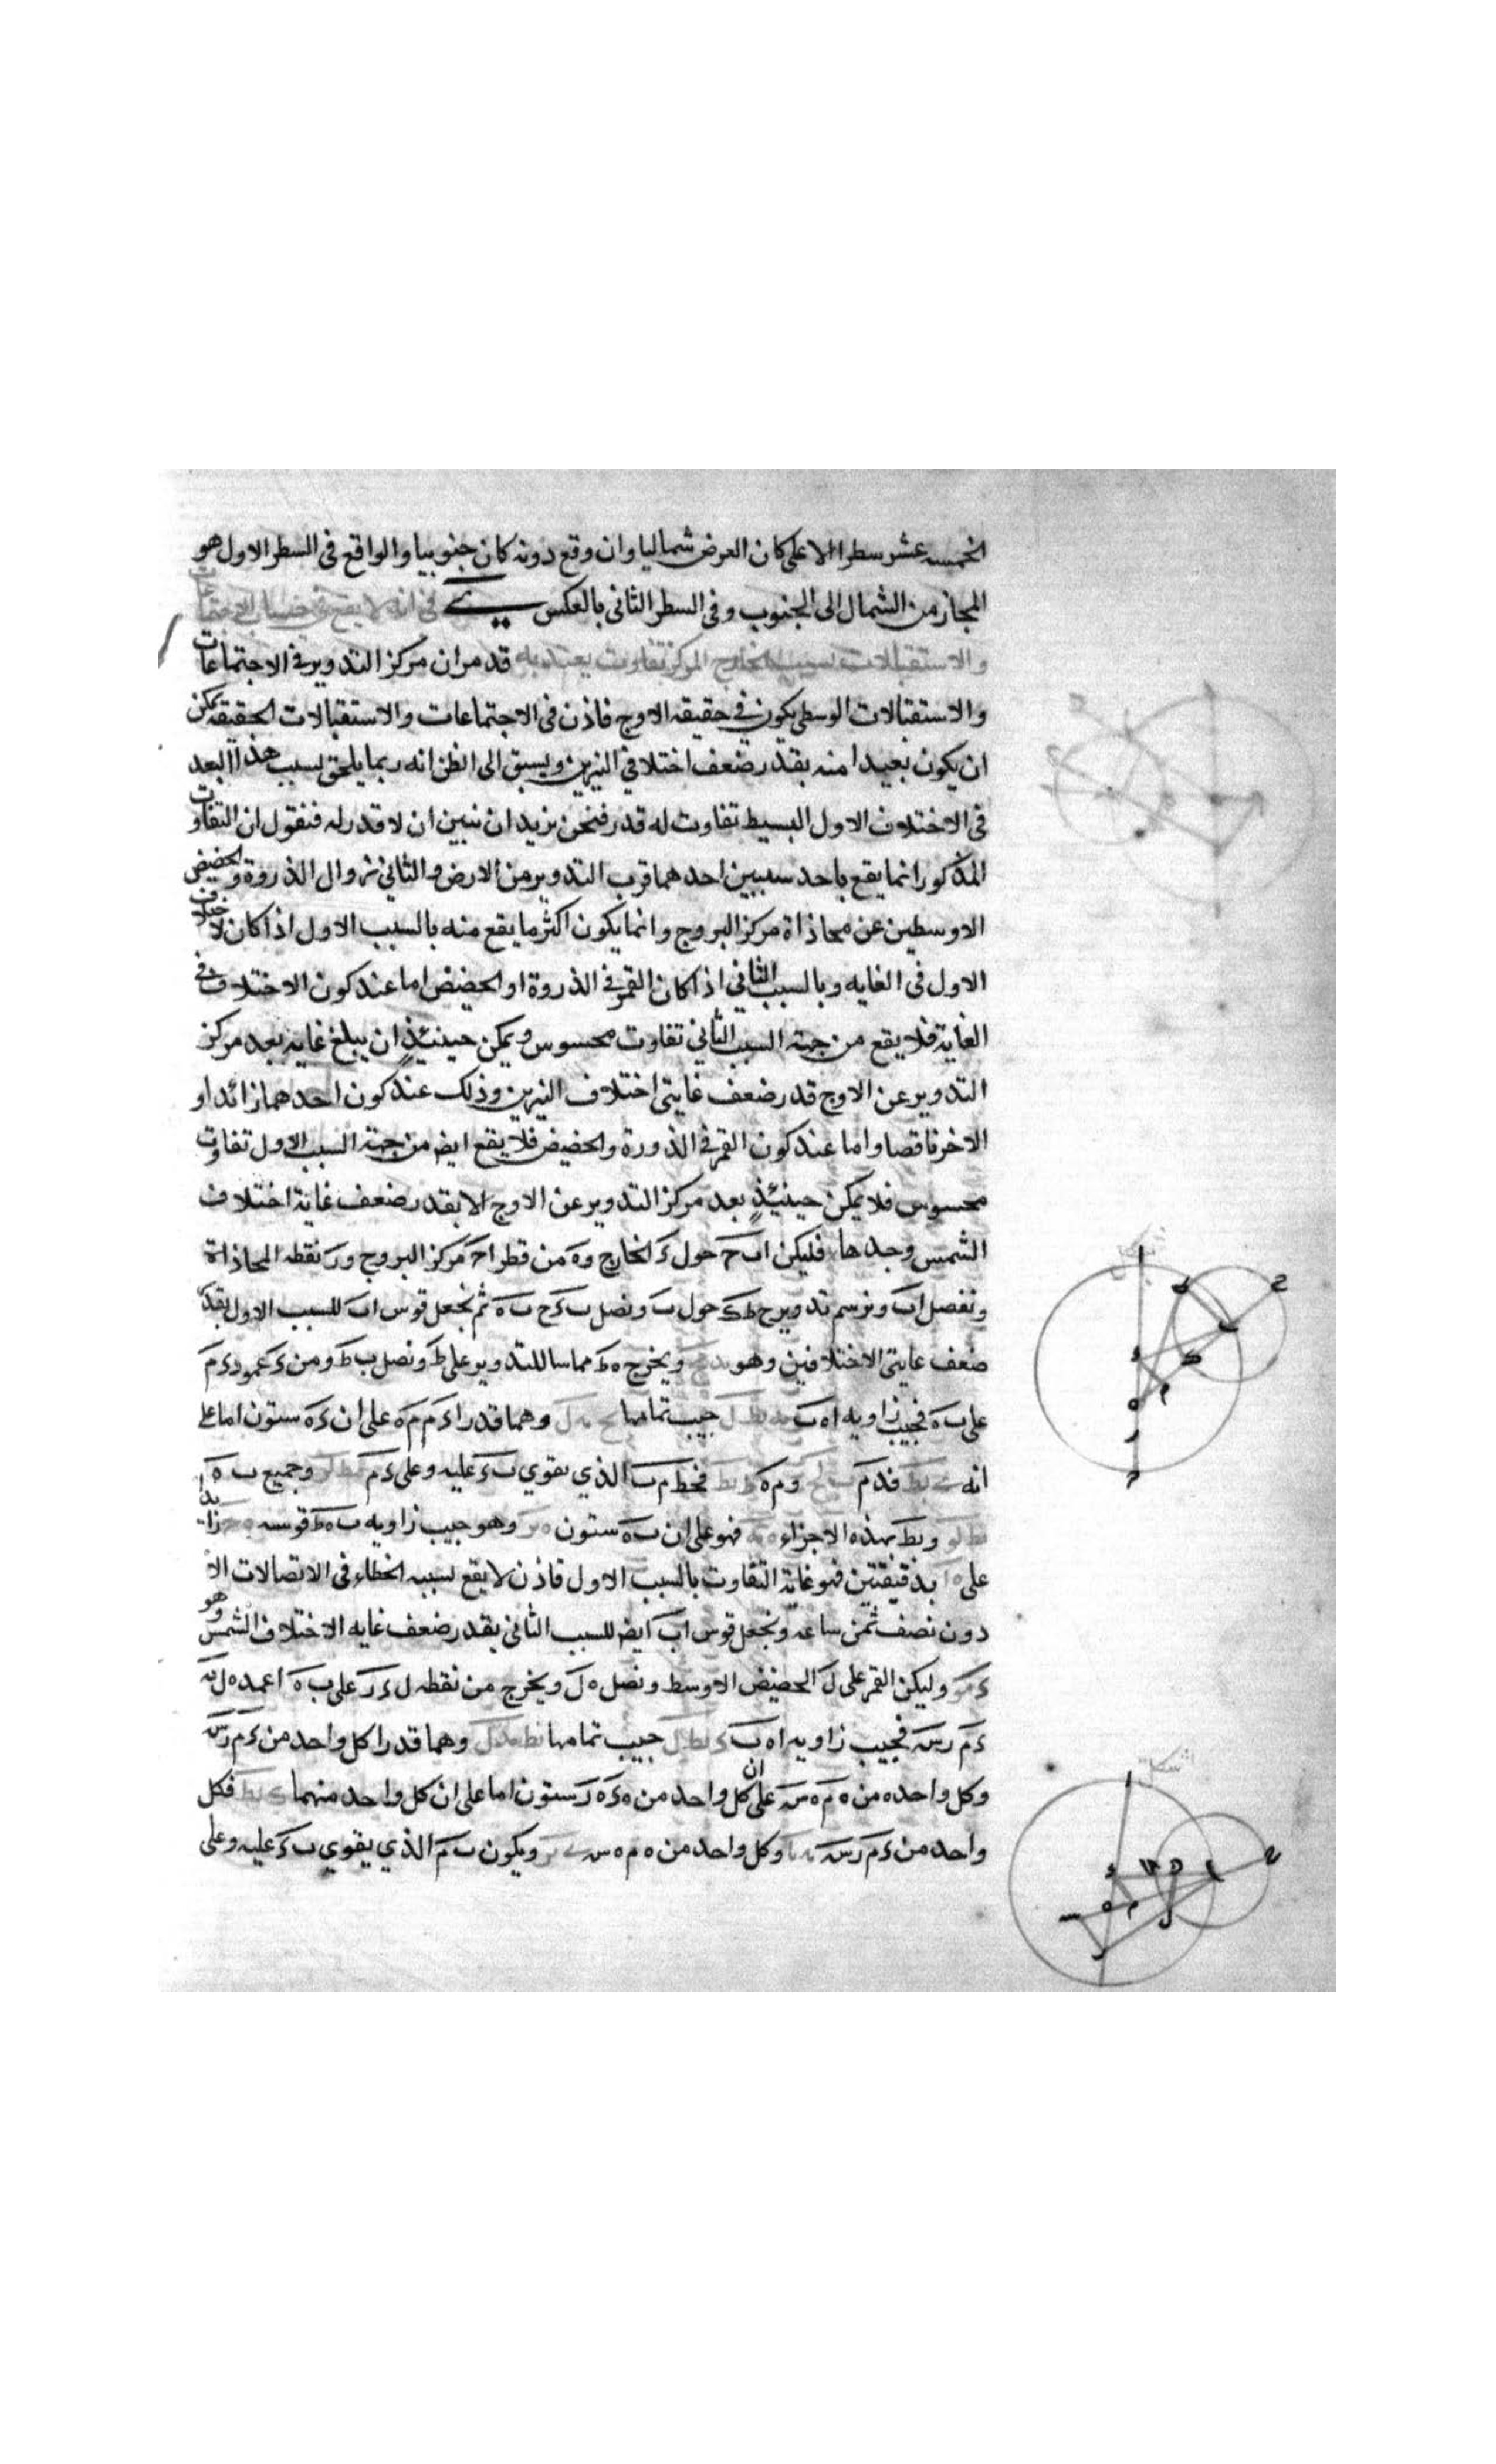 الخمسه عشر سطرا الاعلى كان العرض شماليا وان وقع دونه كان جنوبيا والواقع فى السطر الاول هو
المجاز من الشمال الى الجنوب وفى السطر الثانى بالعكس ى فى انه لا يقع فى حساب الاجتماعات
والاستقبالات بسبب الخارج المركز تفاوت يعتد به قد مر ان مركز التدوير فى الاجتماعات
والاستقبالات الوسطى يكون فى حقيقه الاوج فاذن فى الاجتماعات والاستقبالات الحقيقه يمكن
ان يكون بعيدا منه بقدر ضعف اختلافي النيرين ويسبق الى الظن انه ربما يلحق بسبب هذا البعد
فى الاختلاف الاول البسيط تفاوت له قدر فنحن نريد ان نبين ان لا قدر له فنقول ان التفاوت
المذكور انما يقع باحد سببين احدهما قرب التدوير من الارض والثانى زوال الذروة والحضيض
الاوسطين عن محاذاة مركز البروج وانما يكون اكثر ما يقع منه بالسبب الاول اذا كان الاختلاف
الاول فى الغايه وبالسبب الثانى اذا كان القمر فى الذروة او الحضيض اما عند كون الاختلاف فى
الغاية فلا يقع من جهة السبب الثانى تفاوت محسوس ويمكن حينئذٍ ان يبلغ غاية بعد مركز
التدوير عن الاوج قدر ضعف غايتى اختلاف النيرين وذلك عند كون احدهما زائدا و
الاخر ناقصا واما عند كون القمر فى الذورة والحضيض فلا يقع ايض من جهة السبب الاول تفاوت
محسوس فلا يمكن حينئذٍ بعد مركز التدوير عن الاوج الا بقدر ضعف غاية اختلاف
الشمس وحدها فليكن ا ب ح حول ء الخارج و ه من قطر ا ح مركز البروج و ر نقطه المحاذاة
ونفصل ا ب ونرسم تدوير ح ط ك حول ب ونصل ب ء ح ب ه ثم نجعل قوس ا ب للسبب الاول بقدر
ضعف غايتى الاختلافين وهو ويخرج ه ط مماسا للتدوير على ط ونصل ب ط ومن ء عمود ء م
على ب ه فجيب زاويه ا ه ب جيب تمامها وهما قدرا ء م م ه على ان ء ه ستون اما على
انه فد م و م ه فخط م ب الذي يقوي ب ء عليه وعلى ء م وجميع ب ه
و ب ط بهذه الاجزاء فهو على ان ب ه ستون وهو جيب زاويه ب ه ط قوسه زايد
على بدقيقتين فهو غاية التفاوت بالسبب الاول فاذن لا يقع بسببه الخطاء فى الاتصالات الا
دون نصف ثمن ساعه ونجعل قوس ا ب ايض للسبب الثانى بقدر ضعف غايه الاختلاف الشمس وهو
وليكن القمر على ل الحضيض الاوسط ونصل ه ل ويخرج من نقطه ل ء ر على ب ه اعمده
ء م ر س فجيب زاويه ا ه ب جيب تمامها وهما قدرا كل واحد من ء م ر س
وكل واحده من ه م ه س على ان كل واحد من ه ء ه ر ستون اما على ان كل واحد منهما فكل
واحد من ء م ر س وكل واحد من ه م ه س ويكون ب م الذي يقوي ب ء عليه وعلى